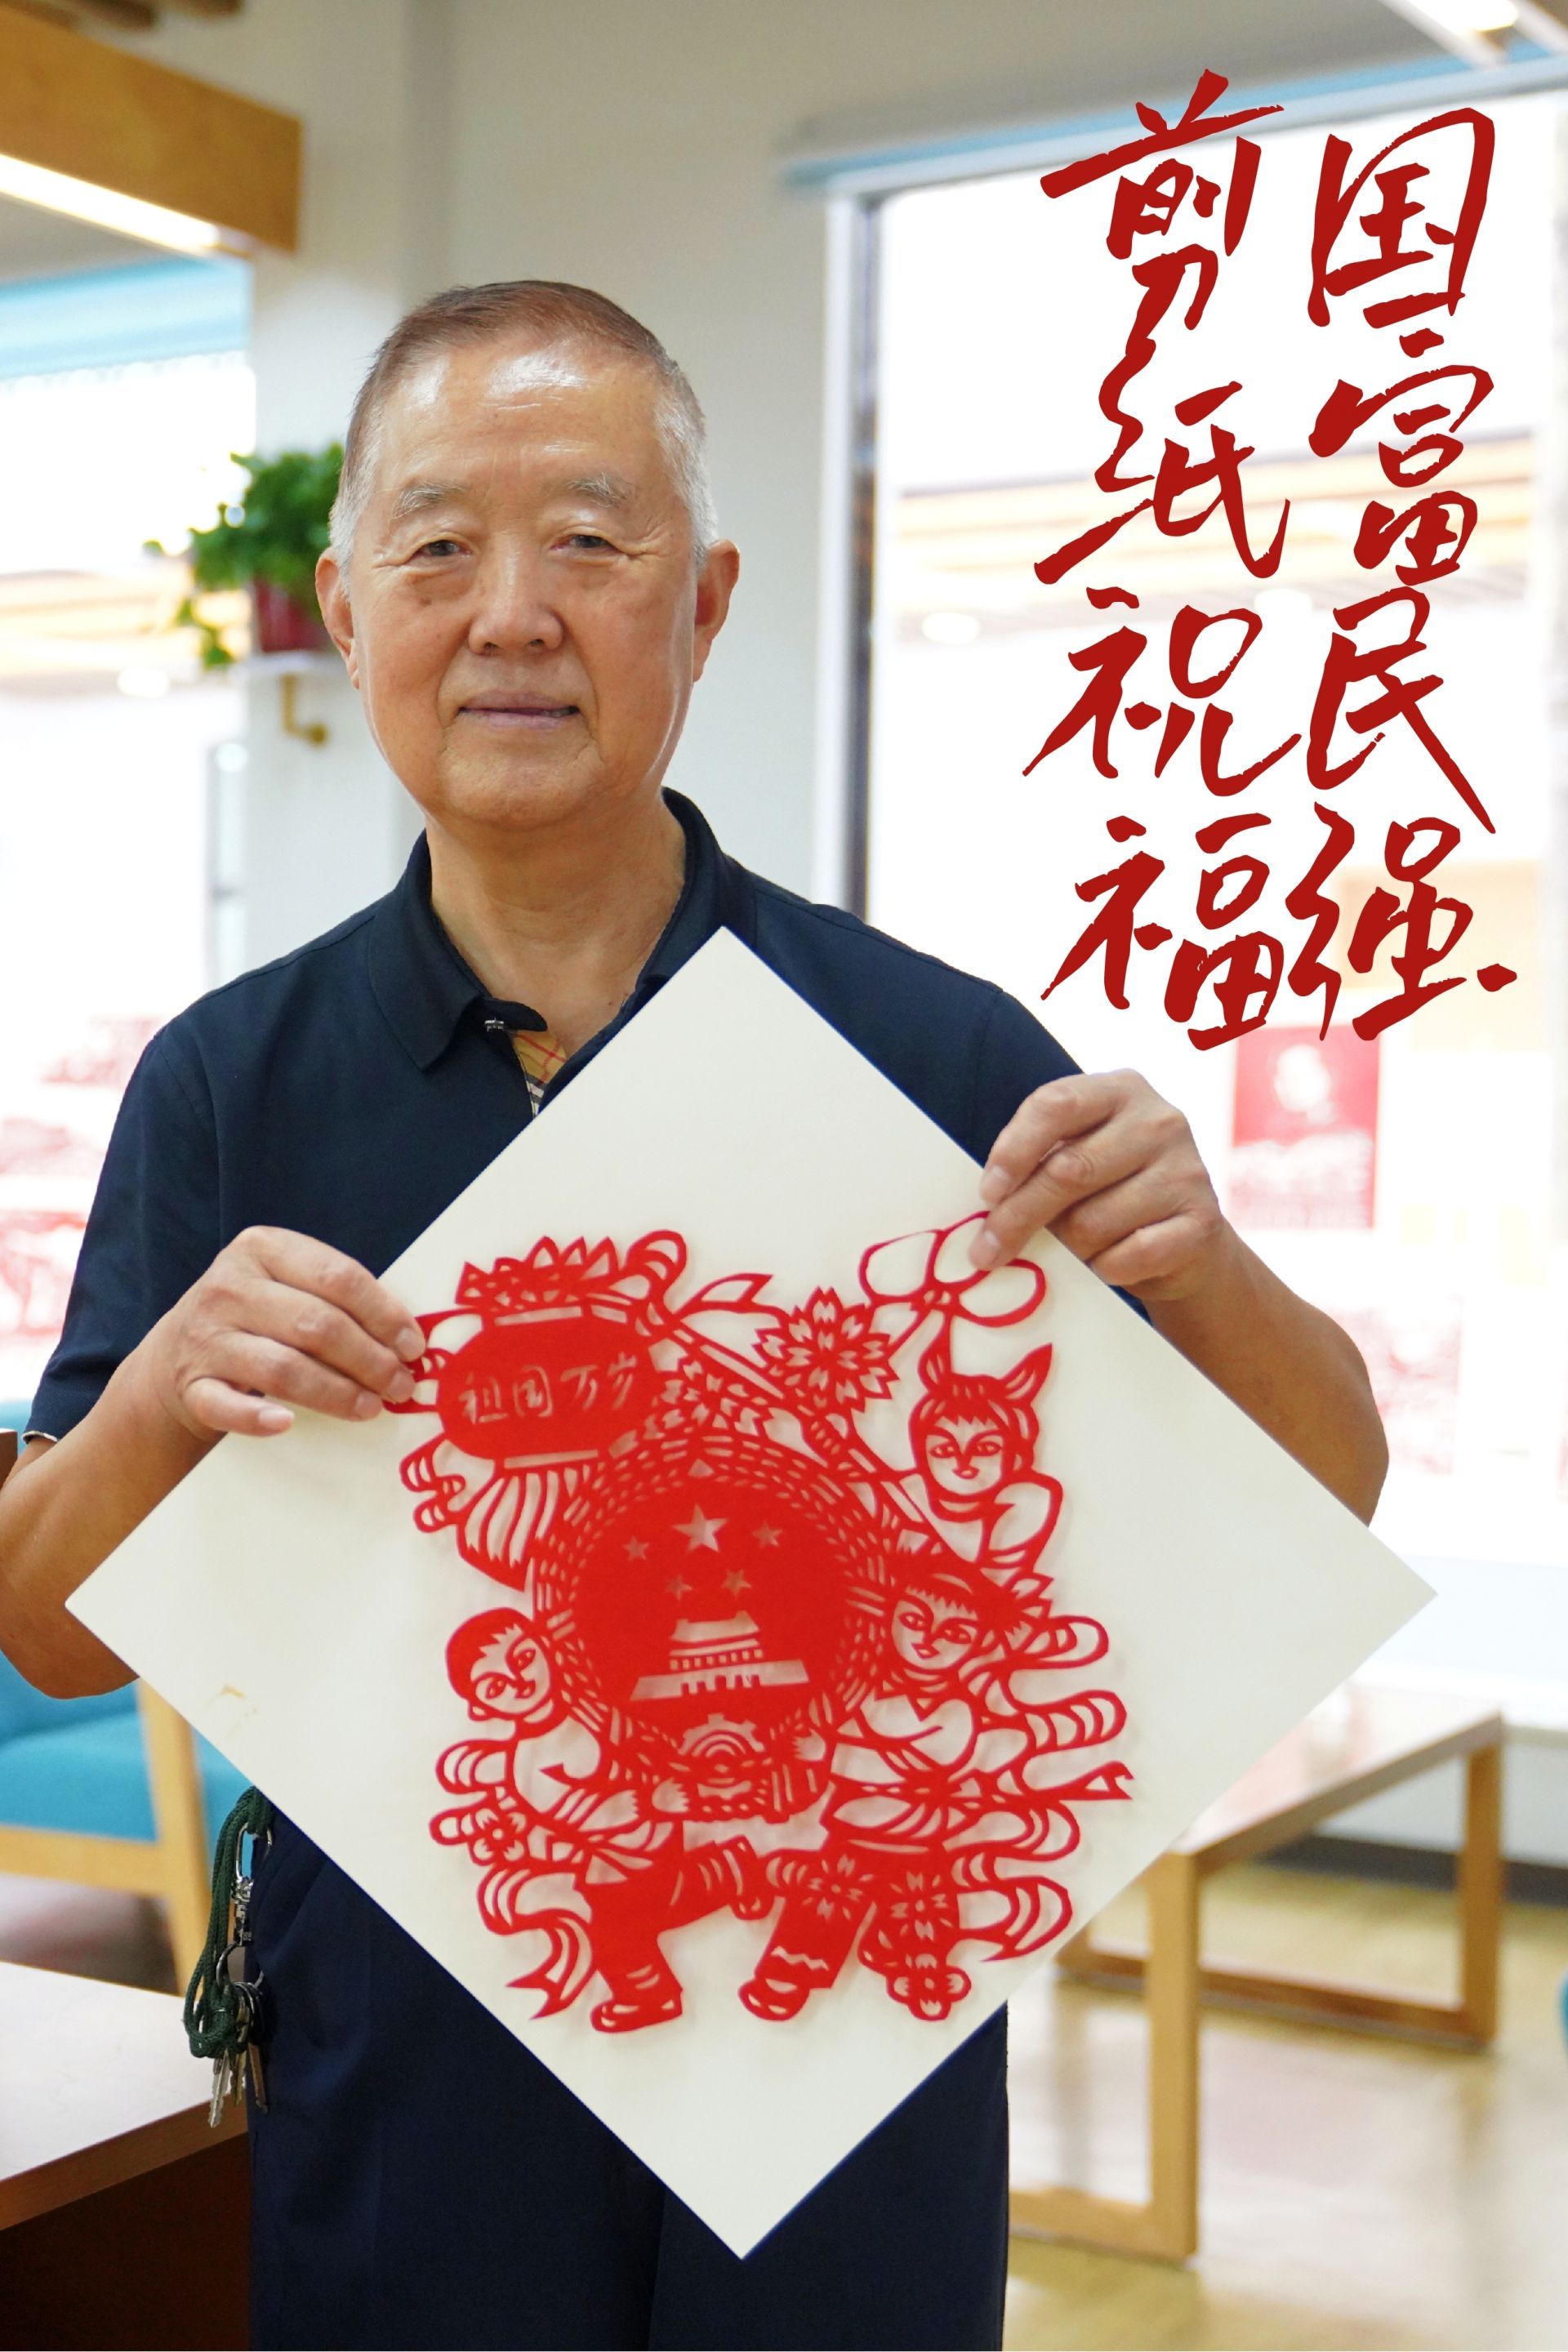 剪纸祝福
国富民强
祖国万岁